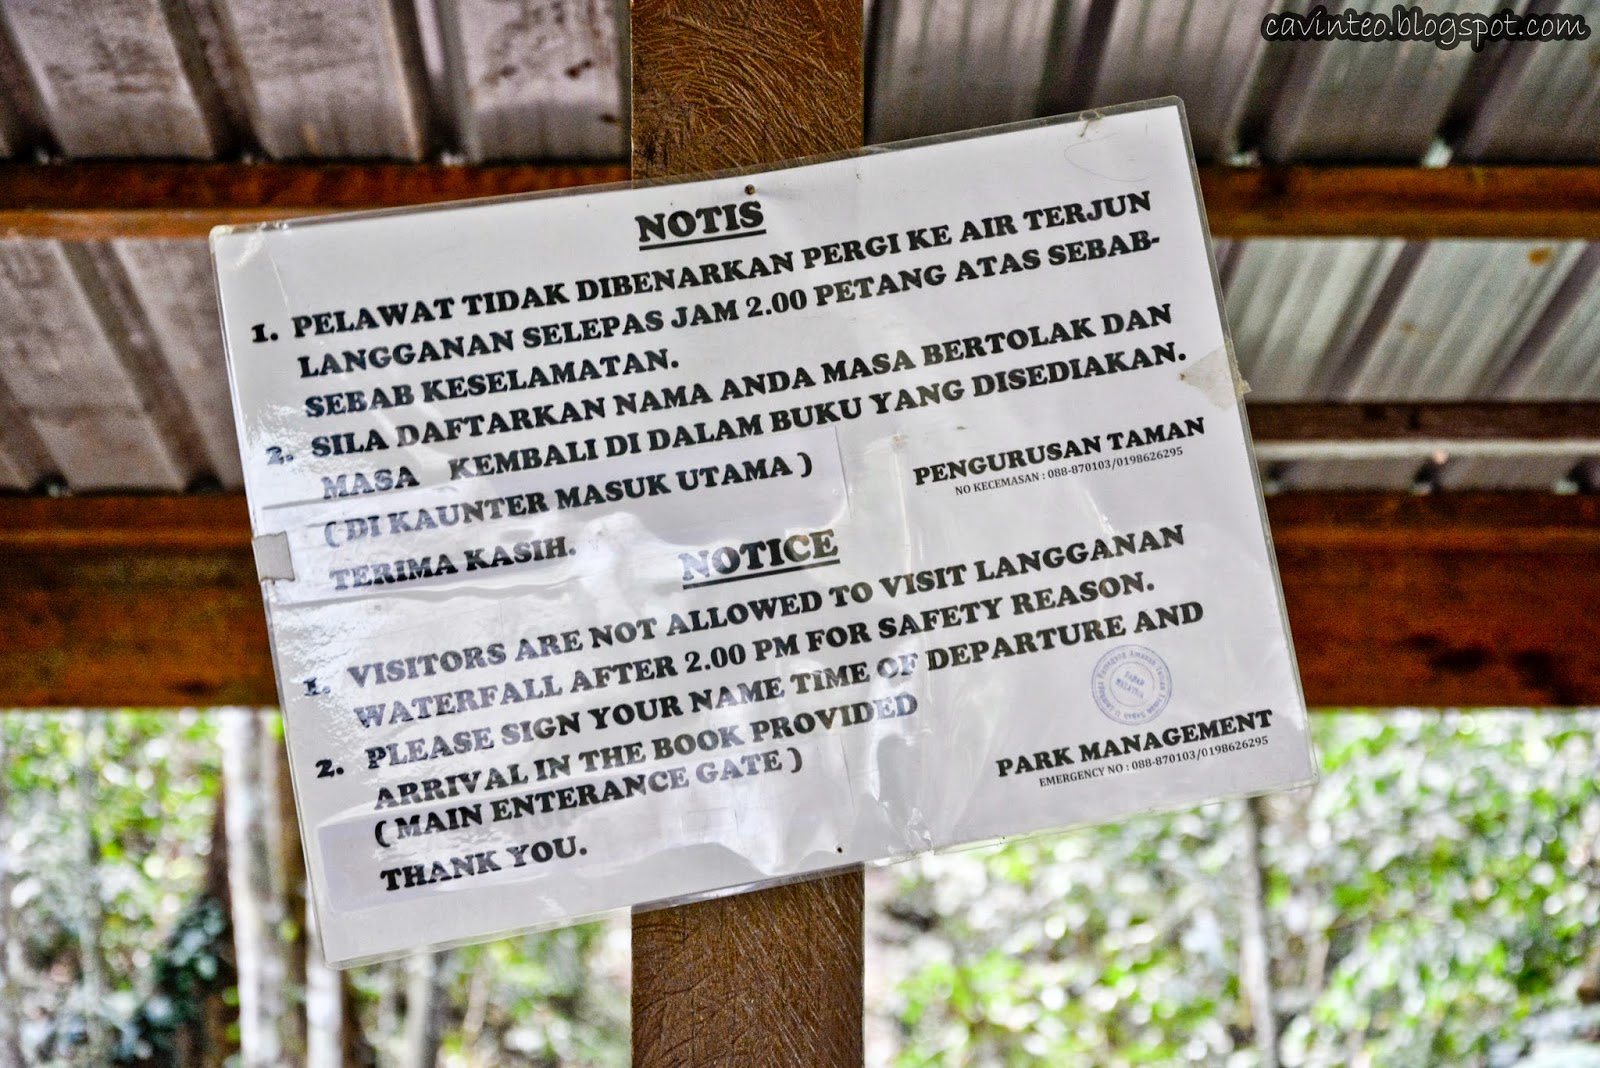 cavinteo.blogspot.com
NOTIS
1. PELAWAT TIDAK DIBENARKAN PERGI KE AIR TERJUN
LANGGANAN SELEPAS JAM 2.00 PETANG ATAS SEBAB-
SEBAB KESELAMATAN.
2. SILA DAFTARKAN NAMA ANDA MASA BERTOLAK DAN
MASA KEMBALI DI DALAM BUKU YANG DISEDIAKAN.
( DI KAUNTER MASUK UTAMA )
TERIMA KASIH.
PENGURUSAN TAMAN
NO KECEMASAN : 088-870103/0198626295
NOTICE
1. VISITORS ARE NOT ALLOWED TO VISIT LANGGANAN
WATERFALL AFTER 2.00 PM FOR SAFETY REASON.
2. PLEASE SIGN YOUR NAME TIME OF DEPARTURE AND
ARRIVAL IN THE BOOK PROVIDED
( MAIN ENTERANCE GATE )
THANK YOU.
PARK MANAGEMENT
EMERGENCY NO : 088-870103/0198626295